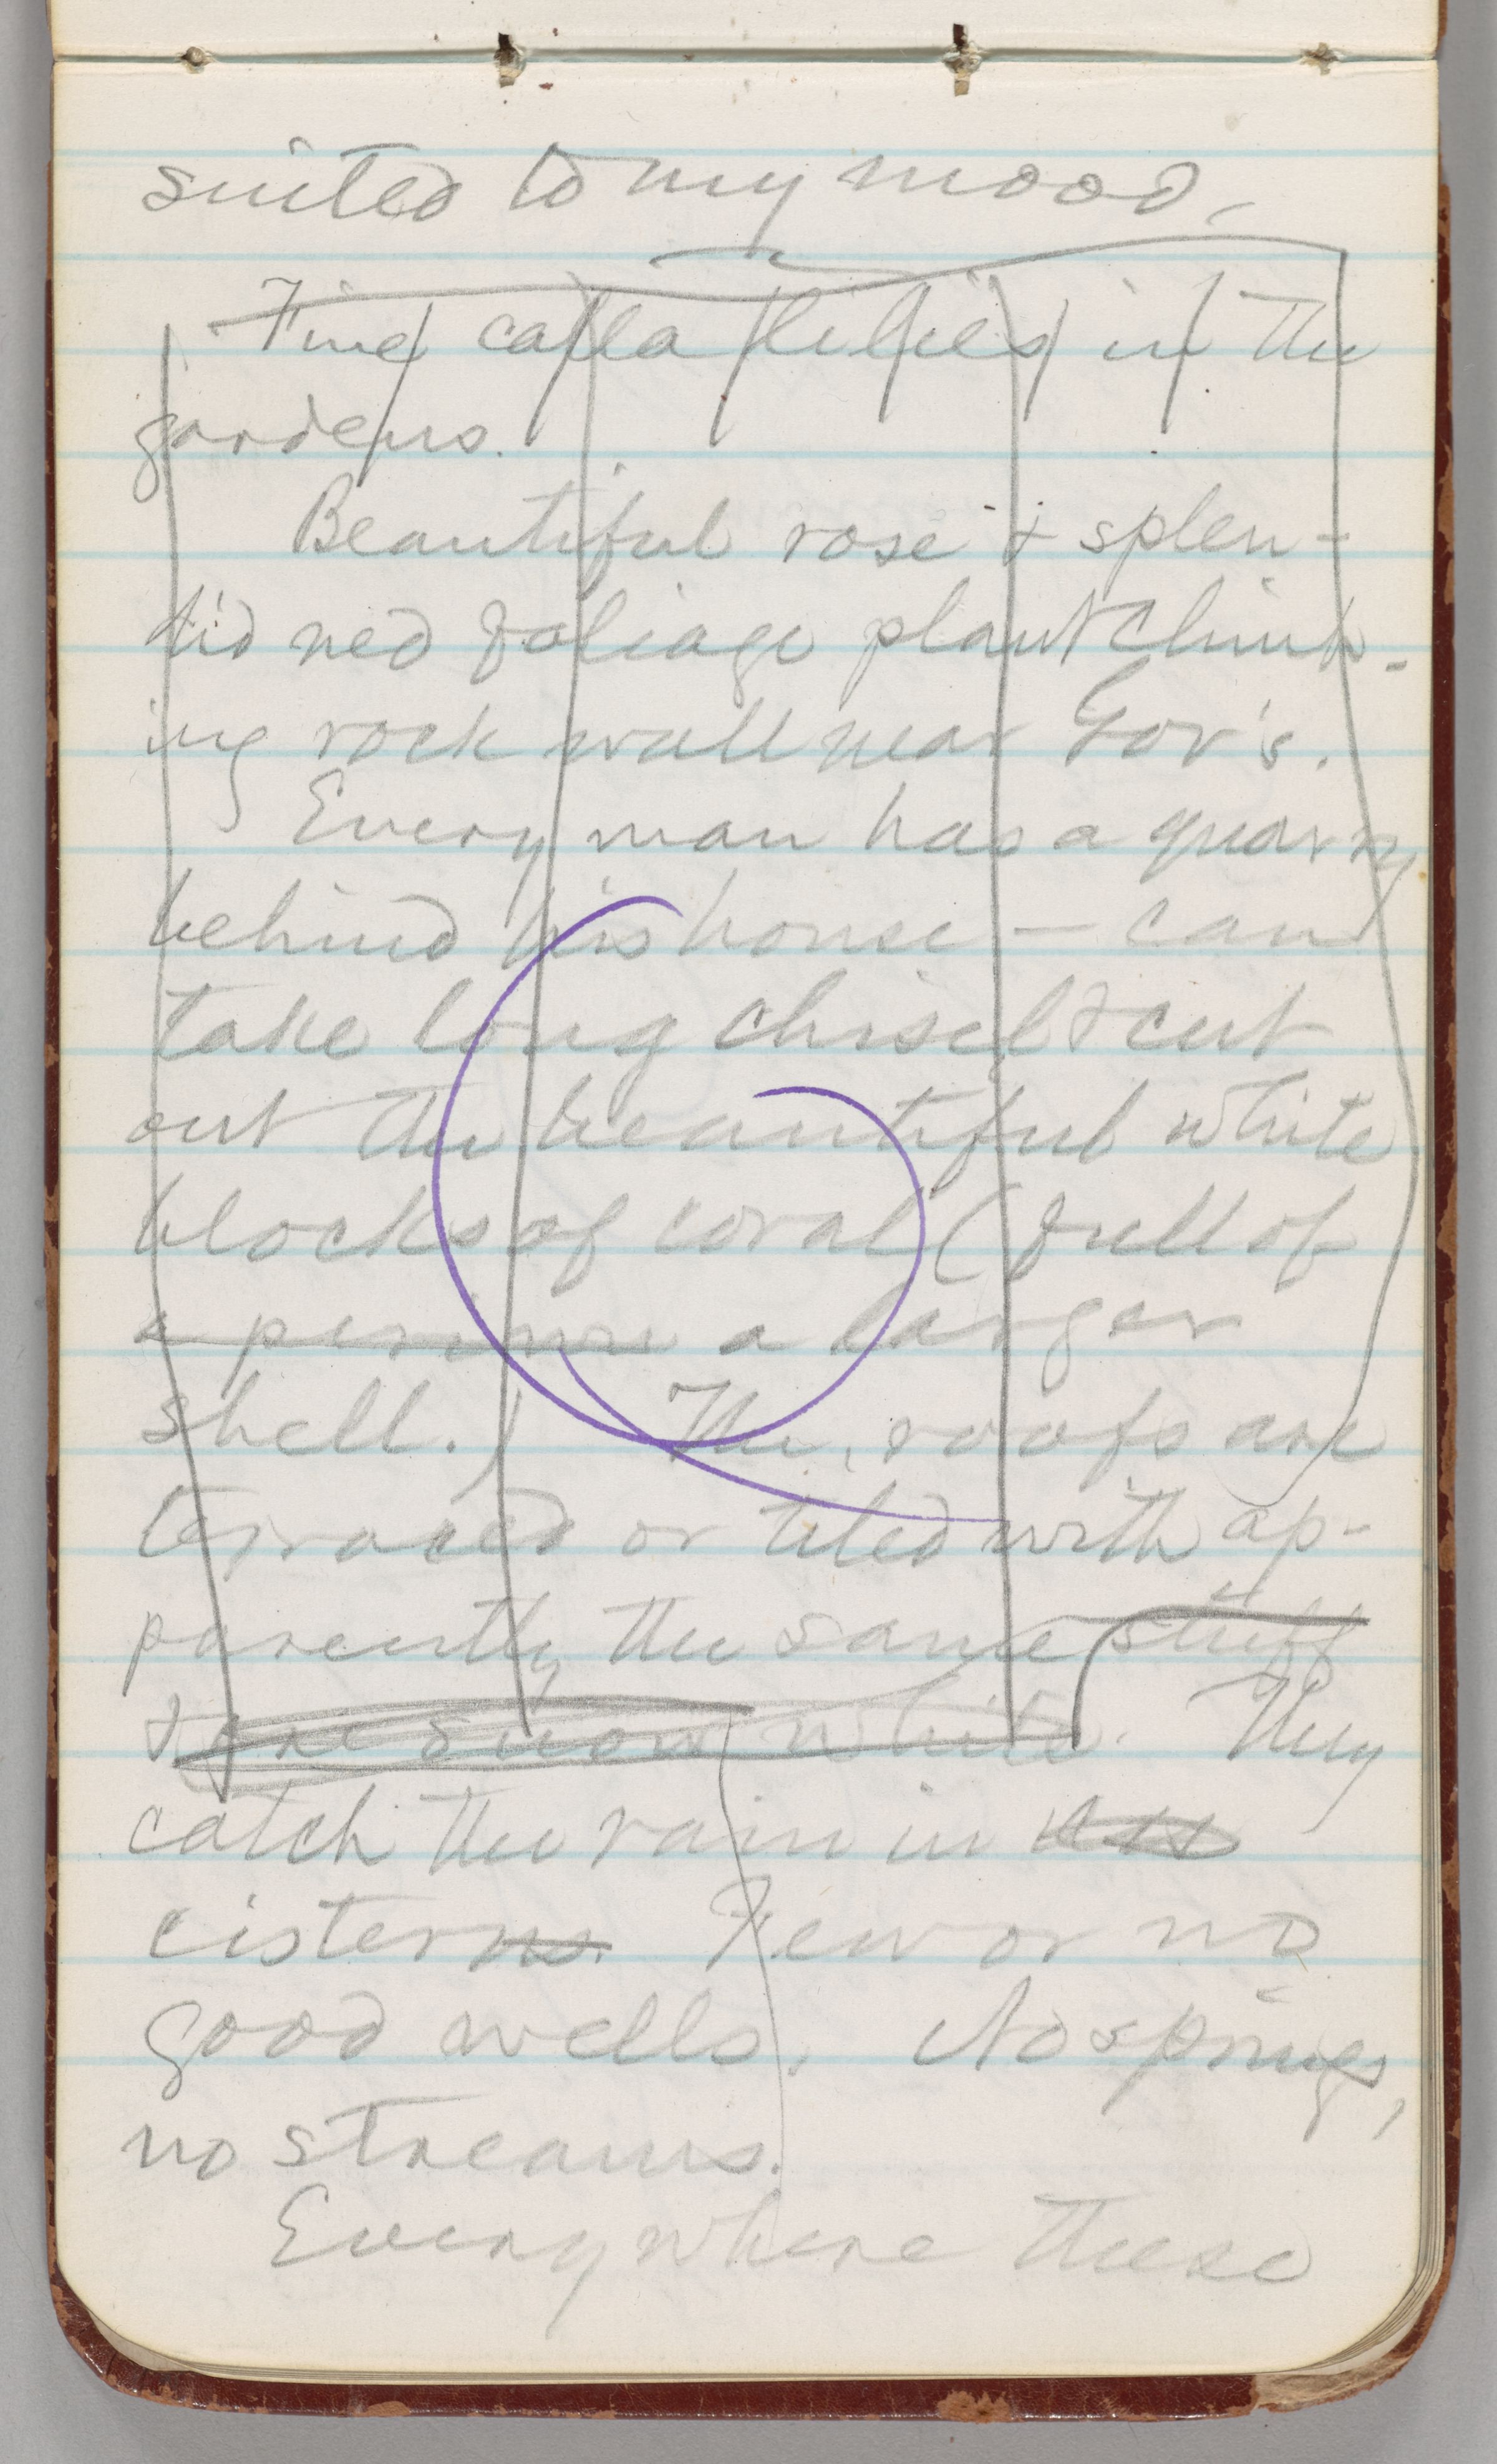 suited to my mood.
Fine calla lilies in the
gardens.
Beautiful rose & splen-
did red foliage plant climb-
ing rock wall near Gov's.
Every man has a quarry
behind his house — can
take long chisel & cut
out the beautiful white
blocks of coral (full of
a periwi a larger
shell.) The roofs are
terraced or tiled with ap-
parently the same stuff
& are snow white. They
catch the rain in
cisterns. Few or no
good wells. No springs,
no streams.
Everywhere these